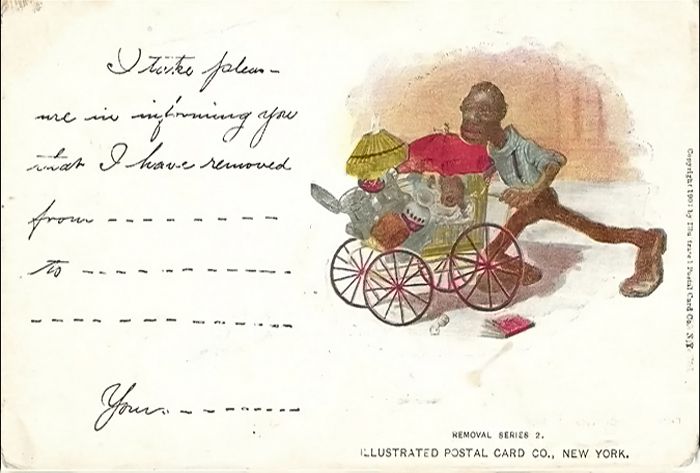 I take pleas-
ure in informing you
that I have removed
from - - - - - - - - -
to - - - - - - - - - - -
- - - - - - - - - - - -
Your. - - - - - - - -
REMOVAL SERIES 2.
ILLUSTRATED POSTAL CARD CO., NEW YORK.
Copyright 190 by Illustrated Postal Card Co., N.Y.